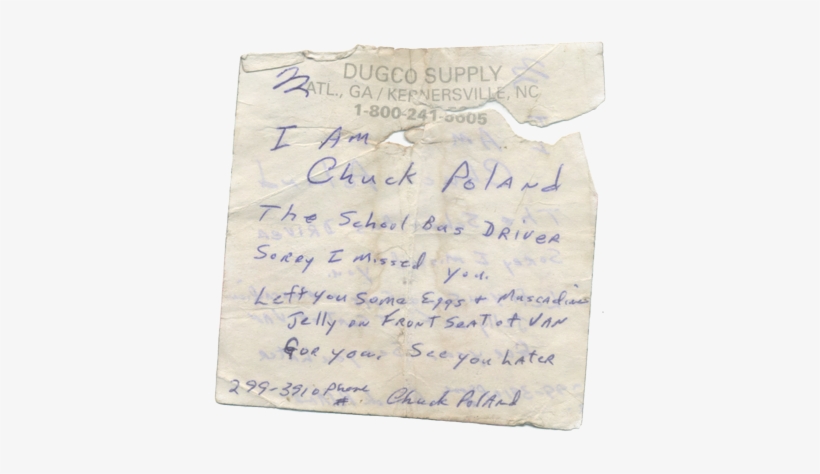 DUGCO SUPPLY
ATL., GA / KERNERSVILLE, NC
1-800-241-5605
I Am
Chuck Poland
The School Bus DRIVER
Sorry I missed you.
Left you Some Eggs + Muscadine
Jelly on FRONT Seat of VAN
For you. See you LAter
299-3910 phone
#. Chuck Poland